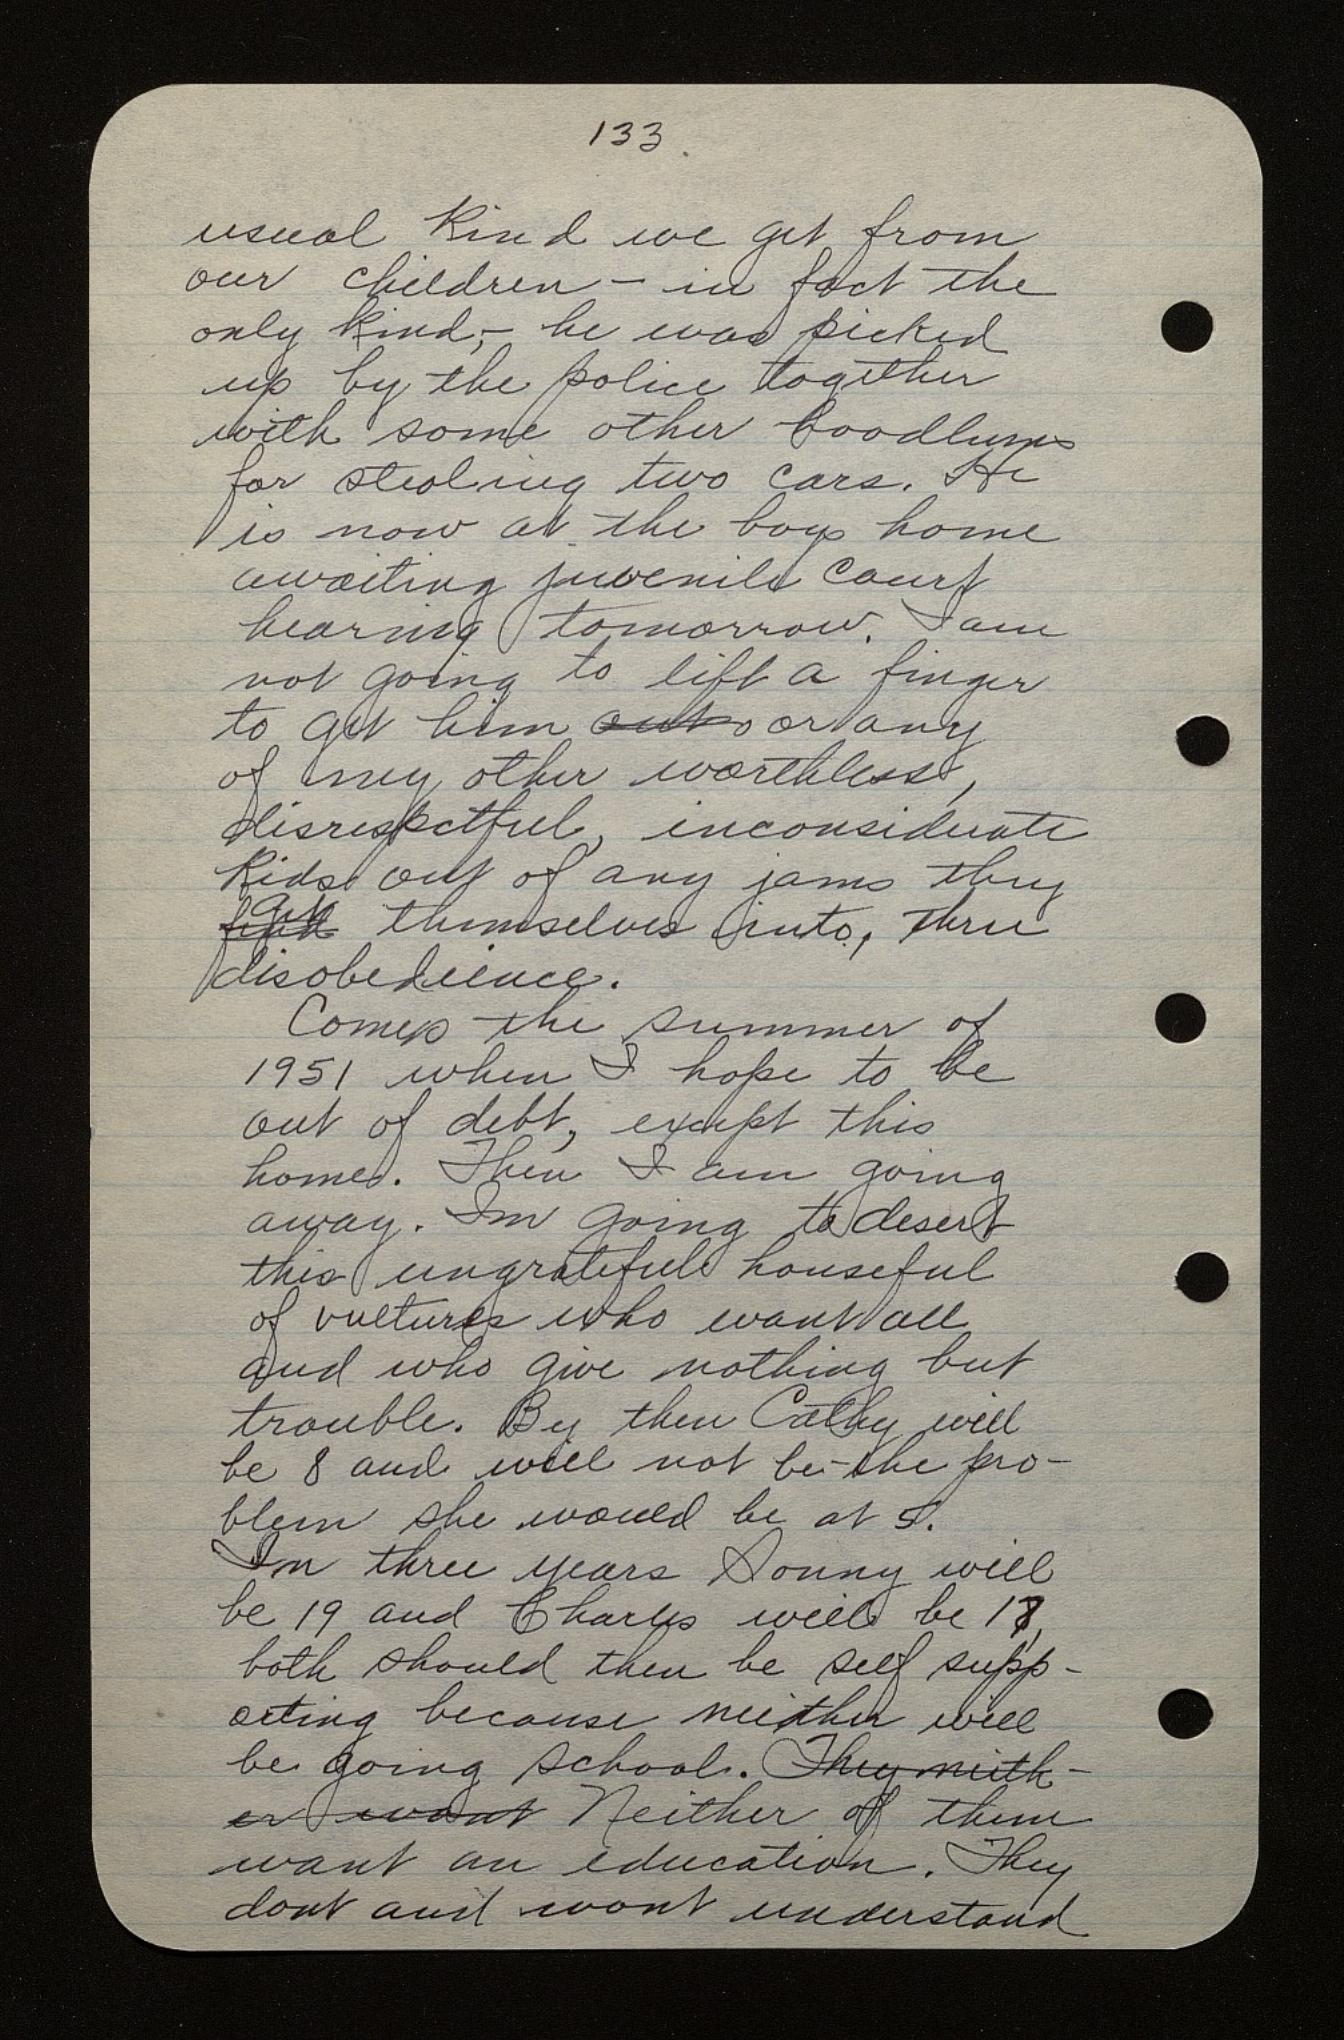 133.
usual kind we get from
our children - in fact the
only kind, - he was picked
up by the police together
with some other hoodlums
for stealing two cars. He
is now at the boys home
awaiting juvenile court
hearing tomorrow. I am
not going to lift a finger
to get him out or any
of my other worthless,
disrespectful, inconsiderate
kids out of any jams they
get themselves into, thru
disobedience.
Comes the summer of
1951 when I hope to be
out of debt, except this
home. Then I am going
away. Im going to desert
this ungrateful houseful
of vultures who want all
and who give nothing but
trouble. By then Cathy will
be 8 and will not be the pro-
blem she would be at 5.
In three years Sonny will
be 19 and Charles will be 17,
both should then be self supp-
orting because neither will
be going school. They neith-
er want Neither of them
want an education. They
dont and wont understand